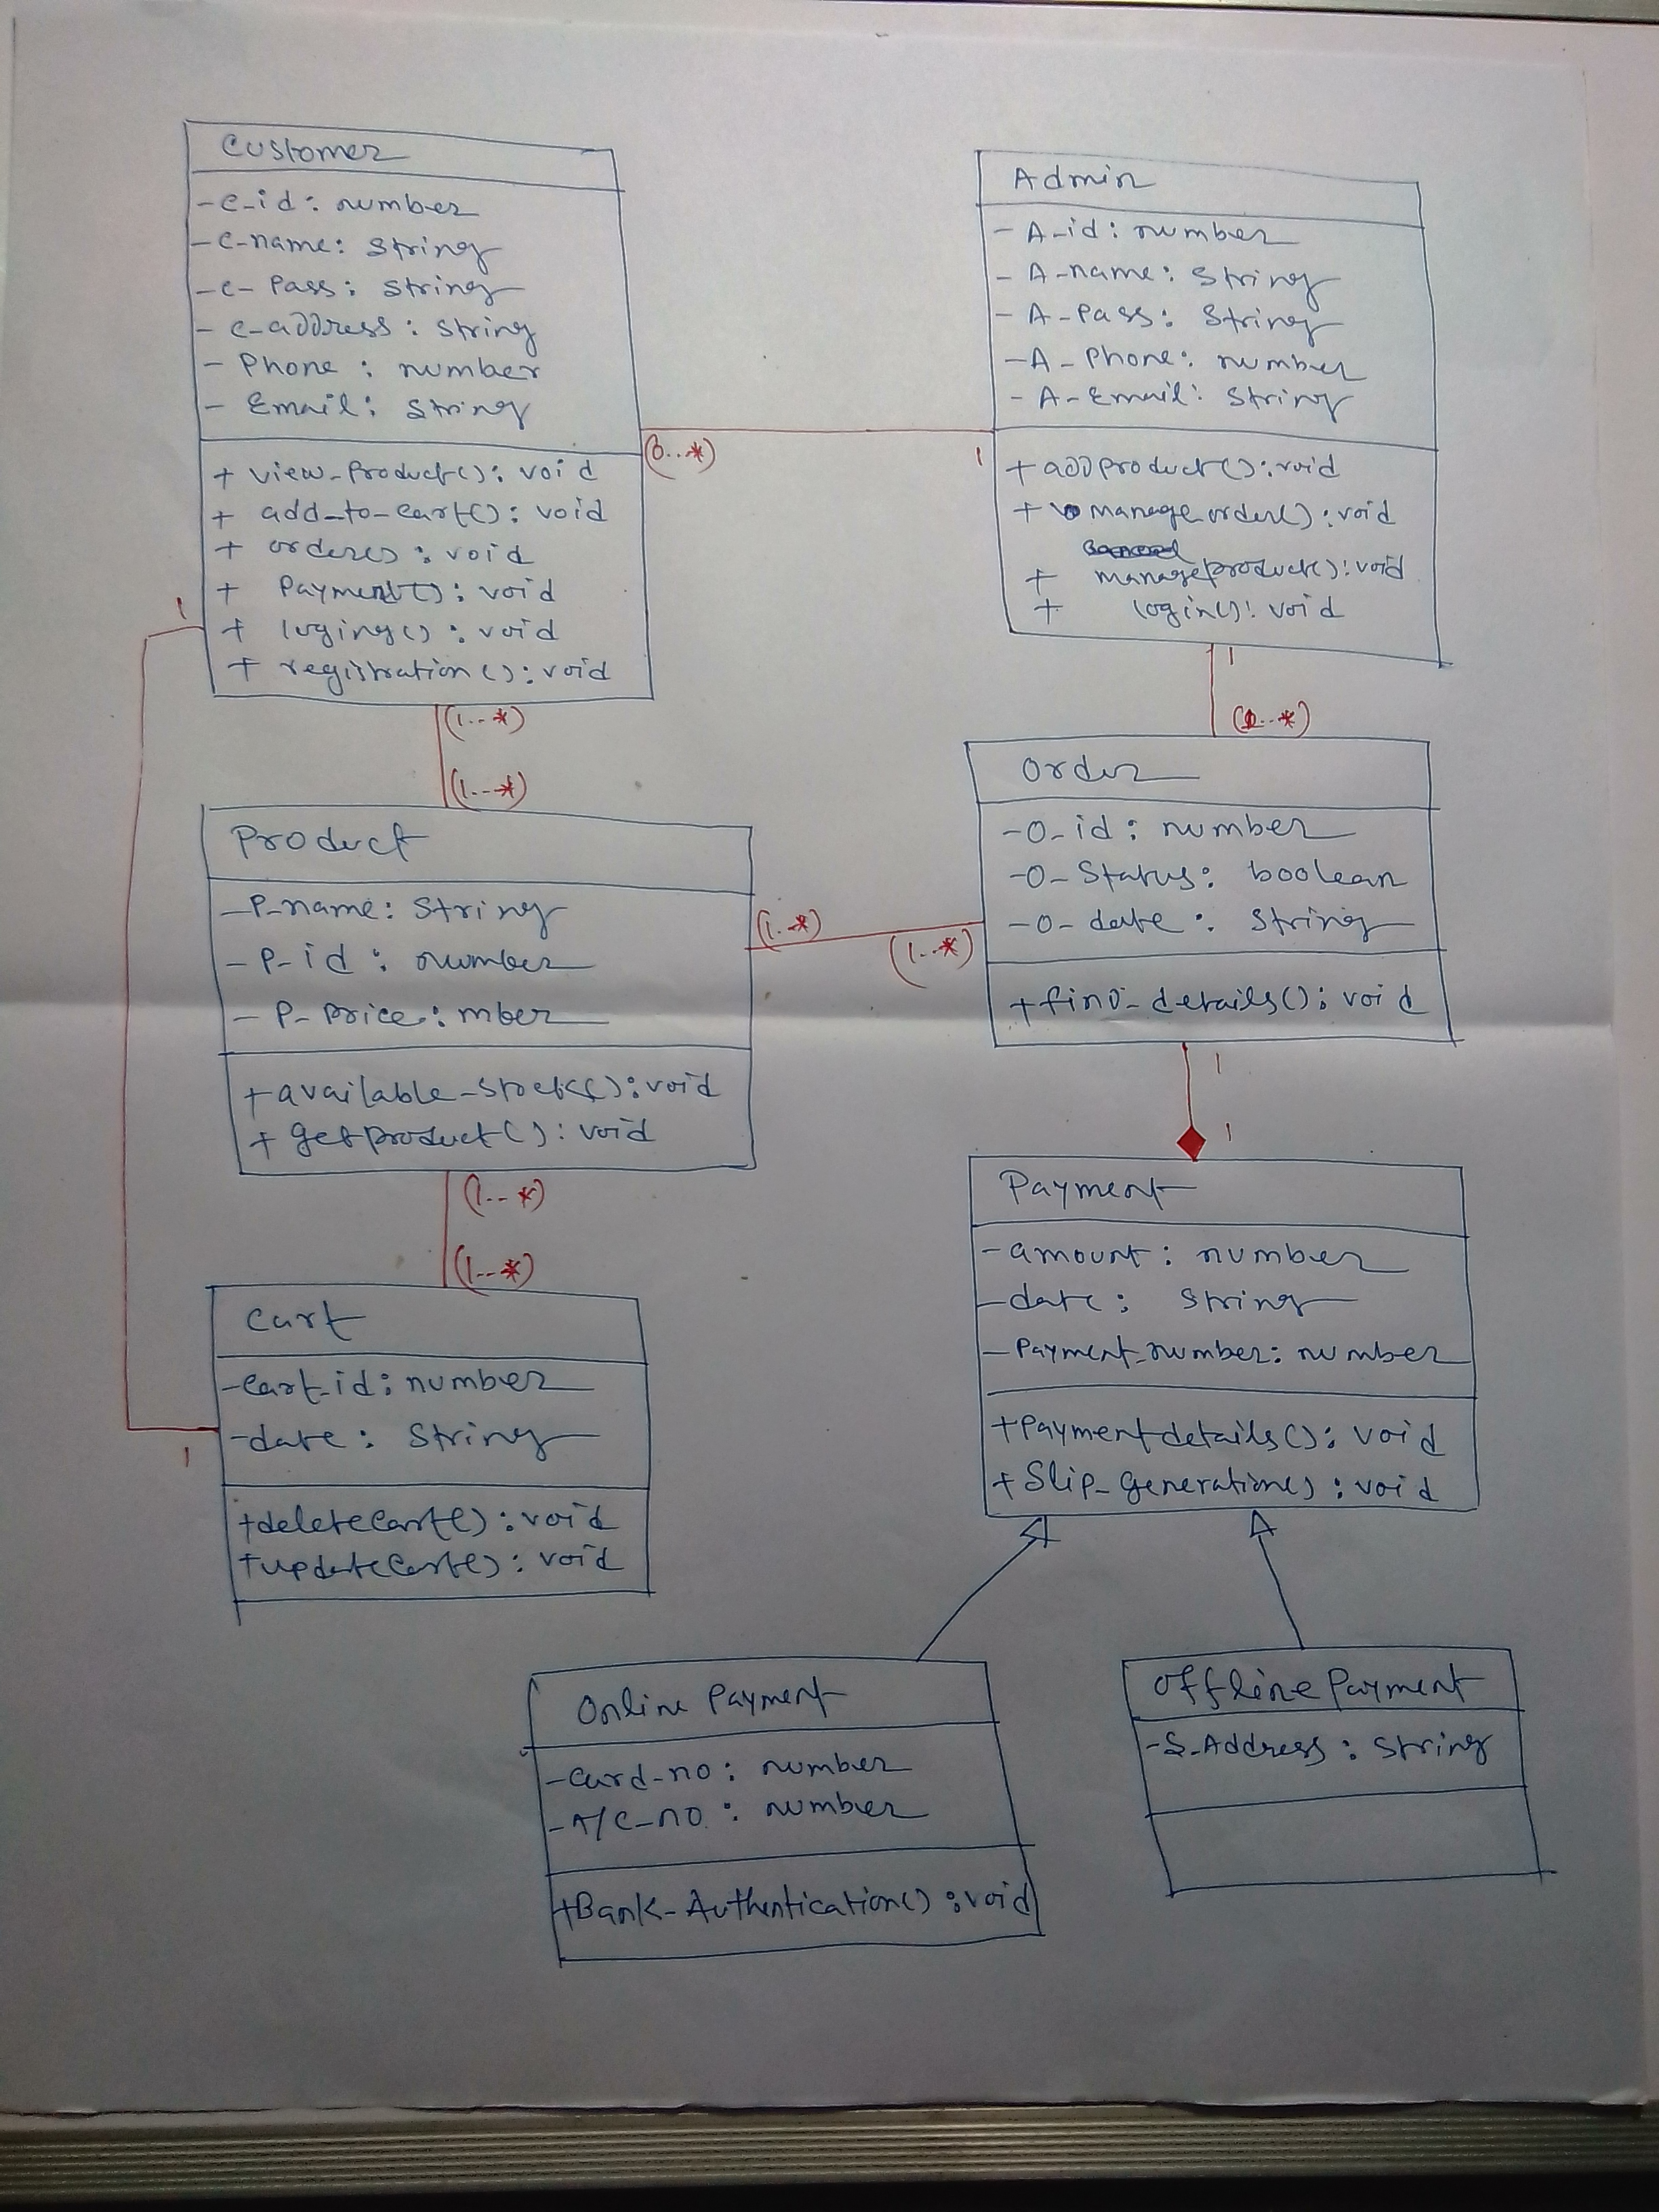 Customer
-C-id: number
-C-name: String
-C-Pass: String
-C-address: String
-Phone: number
-Email: String
+ view-Product(): void
+ add-to-cart(): void
+ order(): void
+ Payment(): void
+ loging(): void
+ registration(): void
Admin
-A-id: number
-A-name: String
-A-Pass: String
-A-Phone: number
-A-Email: String
+ addproduct(): void
+ manageorder(): void
+ manageproduct(): void
+ login(): void
(0..*)
1
1
(1..*)
(1..*)
1
(..*)
Product
-P-name: String
-P-id: number
-P-Price: mber
+ available-stock(): void
+ getproduct(): void
Order
-O-id: number
-O-Status: boolean
-O-date: String
+ find-details(): void
(1..*)
(1..*)
1
1
(1..*)
(1..*)
Cart
-Cart-id: number
-date: String
+deleteCart(): void
+updateCart(): void
1
Payment
-amount: number
-date: String
-Payment-number: number
+Paymentdetails(): void
+Slip-Generation(): void
Online Payment
-Card-no: number
-A/C-no: number
+Bank-Authentication(): void
Offline Payment
-S-Address: String